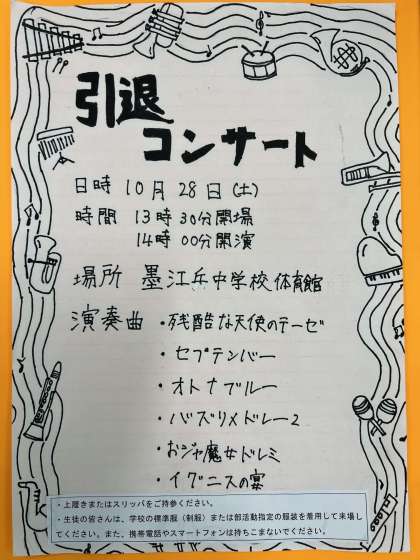 引退
コンサート
日時 10月28日(土)
時間 13時30分開場
14時00分開演
場所 墨江丘中学校体育館
演奏曲 ・残酷な天使のテーゼ
・セプテンバー
・オトナブルー
・バズリメドレー2
・おジャ魔女ドレミ
・イグニスの宴
・上履きまたはスリッパをご持参ください。
・生徒の皆さんは、学校の標準服（制服）または部活動指定の服装を着用して来場し
てください。また、携帯電話やスマートフォンは持ちこまないでください。